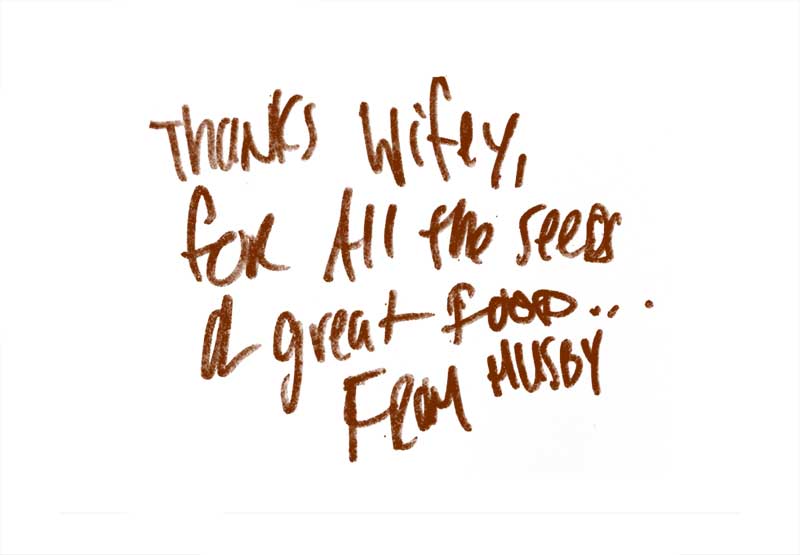 Thanks Wifey,
for All the seeds
& great food...
From HUSBY